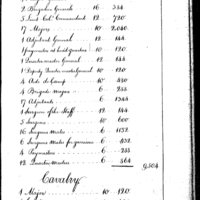 2 Brigadier General 16 384
5 Lieut Col. Commandant 12 720
17 Majors 10 2.040
1 Adjutant General 12 144
1 at head quarters 10 120
1 Quarter master General 12 144
1 Deputy Quarter master General 10 120
4 Aids de Camp 10 480
4 Brigade Majors 6 288
17 Adjutants 6 1344
1 Surgeon of the Staff 12 144
5 Surgeons 10 600
16 Surgeons Mates 6 1152
6 Surgeons Mates for garrisons 6 432
4 Paymasters 6 288
12 Quarter Masters 6 864
9,504
Cavalry
1 Major 10 120